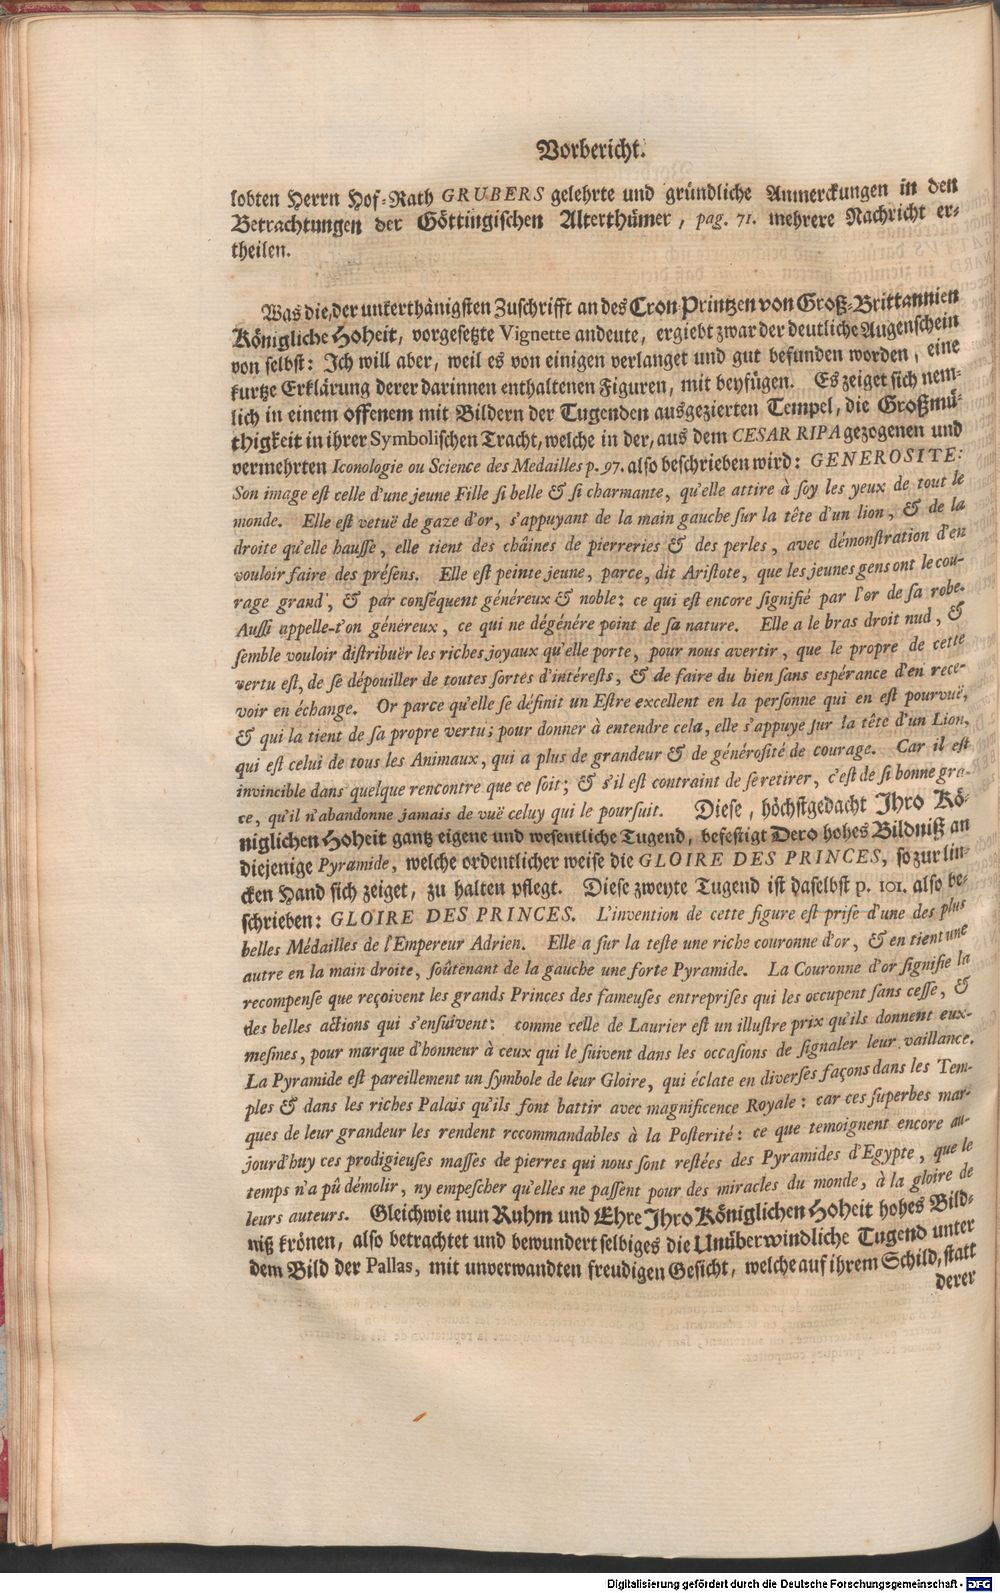 Vorbericht.
lobten Herrn Hof-Rath GRUBERS gelehrte und gründliche Anmerckungen in den
Betrachtungen der Göttingischen Alterthümer, pag. 71. mehrere Nachricht er-
theilen.
Was die, der unterthänigsten Zuschrifft an des Cron-Printzen von Groß-Brittannien
Königliche Hoheit, vorgesetzte Vignette andeute, ergiebt zwar der deutliche Augenschein
von selbst: Ich will aber, weil es von einigen verlanget und gut befunden worden, eine
kurtze Erklärung derer darinnen enthaltenen Figuren, mit beyfügen. Es zeiget sich nem-
lich in einem offenem mit Bildern der Tugenden ausgezierten Tempel, die Großmü-
thigkeit in ihrer Symbolischen Tracht, welche in der, aus dem CESAR RIPA gezogenen und
vermehrten Iconologie ou Science des Medailles p. 97. also beschrieben wird: GENEROSITE:
Son image eſt celle d'une jeune Fille ſi belle & ſi charmante, qu'elle attire à ſoy les yeux de tout le
monde. Elle eſt vetuë de gaze d'or, s'appuyant de la main gauche ſur la tête d'un lion, & de la
droite qu'elle hauſſe, elle tient des châines de pierreries & des perles, avec démonſtration d'en
vouloir faire des préſens. Elle eſt peinte jeune, parce, dit Ariſtote, que les jeunes gens ont le cou-
rage grand, & par conſéquent généreux & noble: ce qui eſt encore ſignifié par l'or de ſa robe.
Auſſi appelle-t'on généreux, ce qui ne dégénére point de ſa nature. Elle a le bras droit nud, &
ſemble vouloir diſtribuër les riches joyaux qu'elle porte, pour nous avertir, que le propre de cette
vertu eſt, de ſe dépouiller de toutes ſortes d'intéreſts, & de faire du bien ſans eſpérance d'en rece-
voir en échange. Or parce qu'elle ſe définit un Eſtre excellent en la perſonne qui en eſt pourvuë,
& qui la tient de ſa propre vertu; pour donner à entendre cela, elle s'appuye ſur la tête d'un Lion,
qui eſt celui de tous les Animaux, qui a plus de grandeur & de généroſité de courage. Car il eſt
invincible dans quelque rencontre que ce ſoit; & s'il eſt contraint de ſe retirer, c'eſt de ſi bonne gra-
ce, qu'il n'abandonne jamais de vuë celuy qui le pourſuit. Diese, höchstgedacht Ihro Kö-
niglichen Hoheit gantz eigene und wesentliche Tugend, befestigt Dero hohes Bildniß an
diejenige Pyramide, welche ordentlicher weise die GLOIRE DES PRINCES, so zur lin-
cken Hand sich zeiget, zu halten pflegt. Diese zweyte Tugend ist daselbst p. 101. also be-
schrieben: GLOIRE DES PRINCES. L'invention de cette figure eſt priſe d'une des plus
belles Médailles de l'Empereur Adrien. Elle a ſur la teſte une riche couronne d'or, & en tient une
autre en la main droite, ſoûtenant de la gauche une forte Pyramide. La Couronne d'or ſignifie la
recompenſe que reçoivent les grands Princes des fameuſes entrepriſes qui les occupent ſans ceſſe, &
des belles actions qui s'enſuîvent: comme celle de Laurier eſt un illuſtre prix qu'ils donnent eux-
meſmes, pour marque d'honneur à ceux qui le ſuivent dans les occaſions de ſignaler leur vaillance.
La Pyramide eſt pareillement un ſymbole de leur Gloire, qui éclate en diverſes façons dans les Tem-
ples & dans les riches Palais qu'ils font battir avec magnificence Royale: car ces ſuperbes mar-
ques de leur grandeur les rendent recommandables à la Poſterité: ce que temoignent encore au-
jourd'huy ces prodigieuſes maſſes de pierres qui nous ſont reſtées des Pyramides d'Egypte, que le
temps n'a pû démolir, ny empeſcher qu'elles ne paſſent pour des miracles du monde, à la gloire de
leurs auteurs. Gleichwie nun Ruhm und Ehre Ihro Königlichen Hoheit hohes Bild-
niß krönen, also betrachtet und bewundert selbiges die Unüberwindliche Tugend unter
dem Bild der Pallas, mit unverwandten freudigen Gesicht, welche auf ihrem Schild, statt
derer
Digitalisierung gefördert durch die Deutsche Forschungsgemeinschaft - DFG